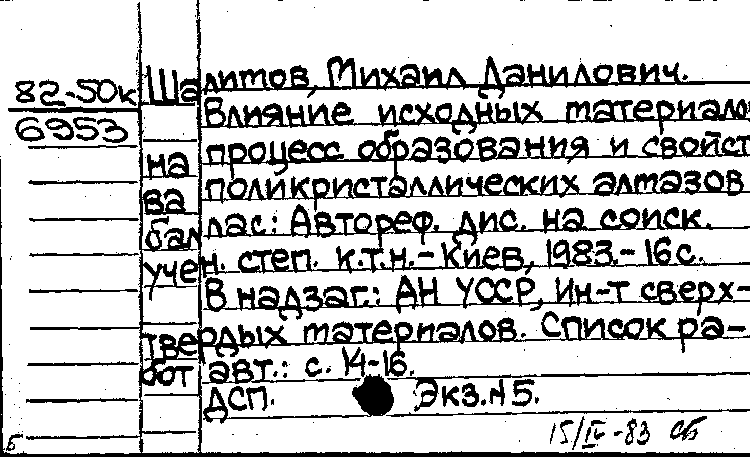 82-50к Шалитов, Михаил Данилович.
6953 Влияние исходных материалов
на процесс образования и свойст
ва поликристаллических алмазов
баллас: Автореф. дис. на соиск.
учен. степ. к.т.н. - Киев, 1983. - 16 с.
В надзаг.: АН УССР, Ин-т сверх-
твердых материалов. Список ра-
бот авт.: с. 14-16.
ДСП. Экз. N 5.
15/IV-83 СБ
Б